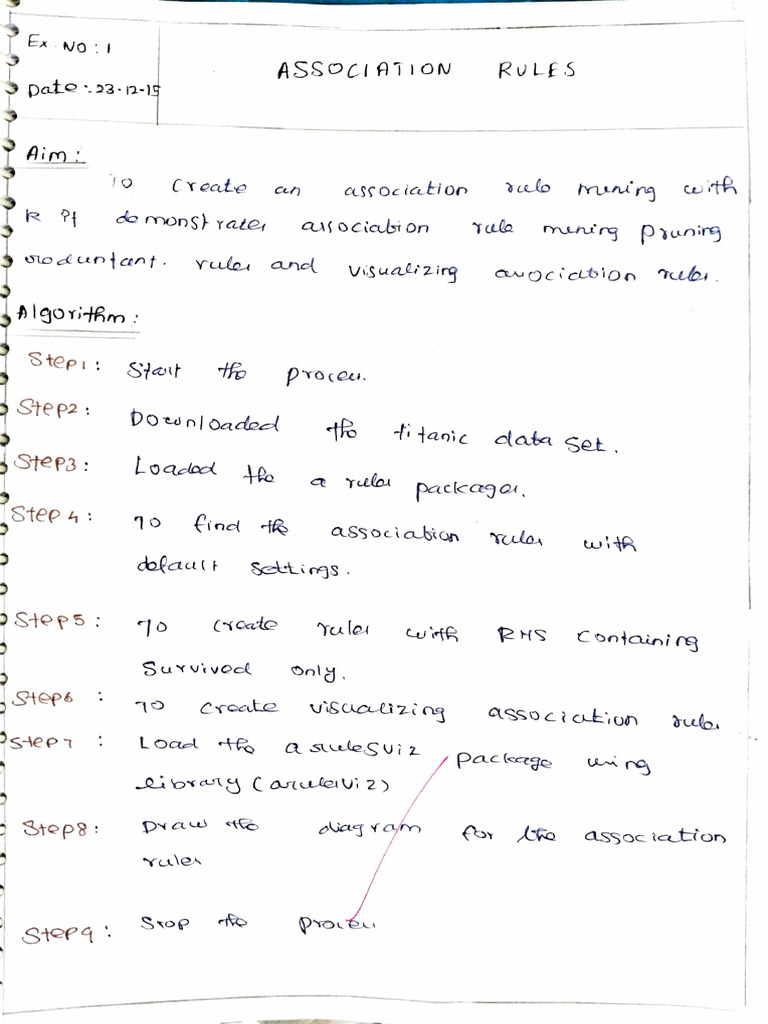 Ex. NO : 1
ASSOCIATION RULES
Date :- 23-12-15
Aim :
To create an association rule mining with
R it demonstrates association rule mining pruning
reduntant. rules and visualizing association rules.
Algorithm :
Step1 : Start the process.
Step2 : Downloaded the titanic data set.
Step3 : Loaded the a rules packages.
Step 4 : To find the association rules with
default settings.
Step5 : To create rules with RHS containing
Survived only.
Step6 : To create visualizing association rules
Step7 : Load the arulesViz package using
library (arulesViz)
Step8 : Draw the diagram for the association
rules
Step9 : Stop the process